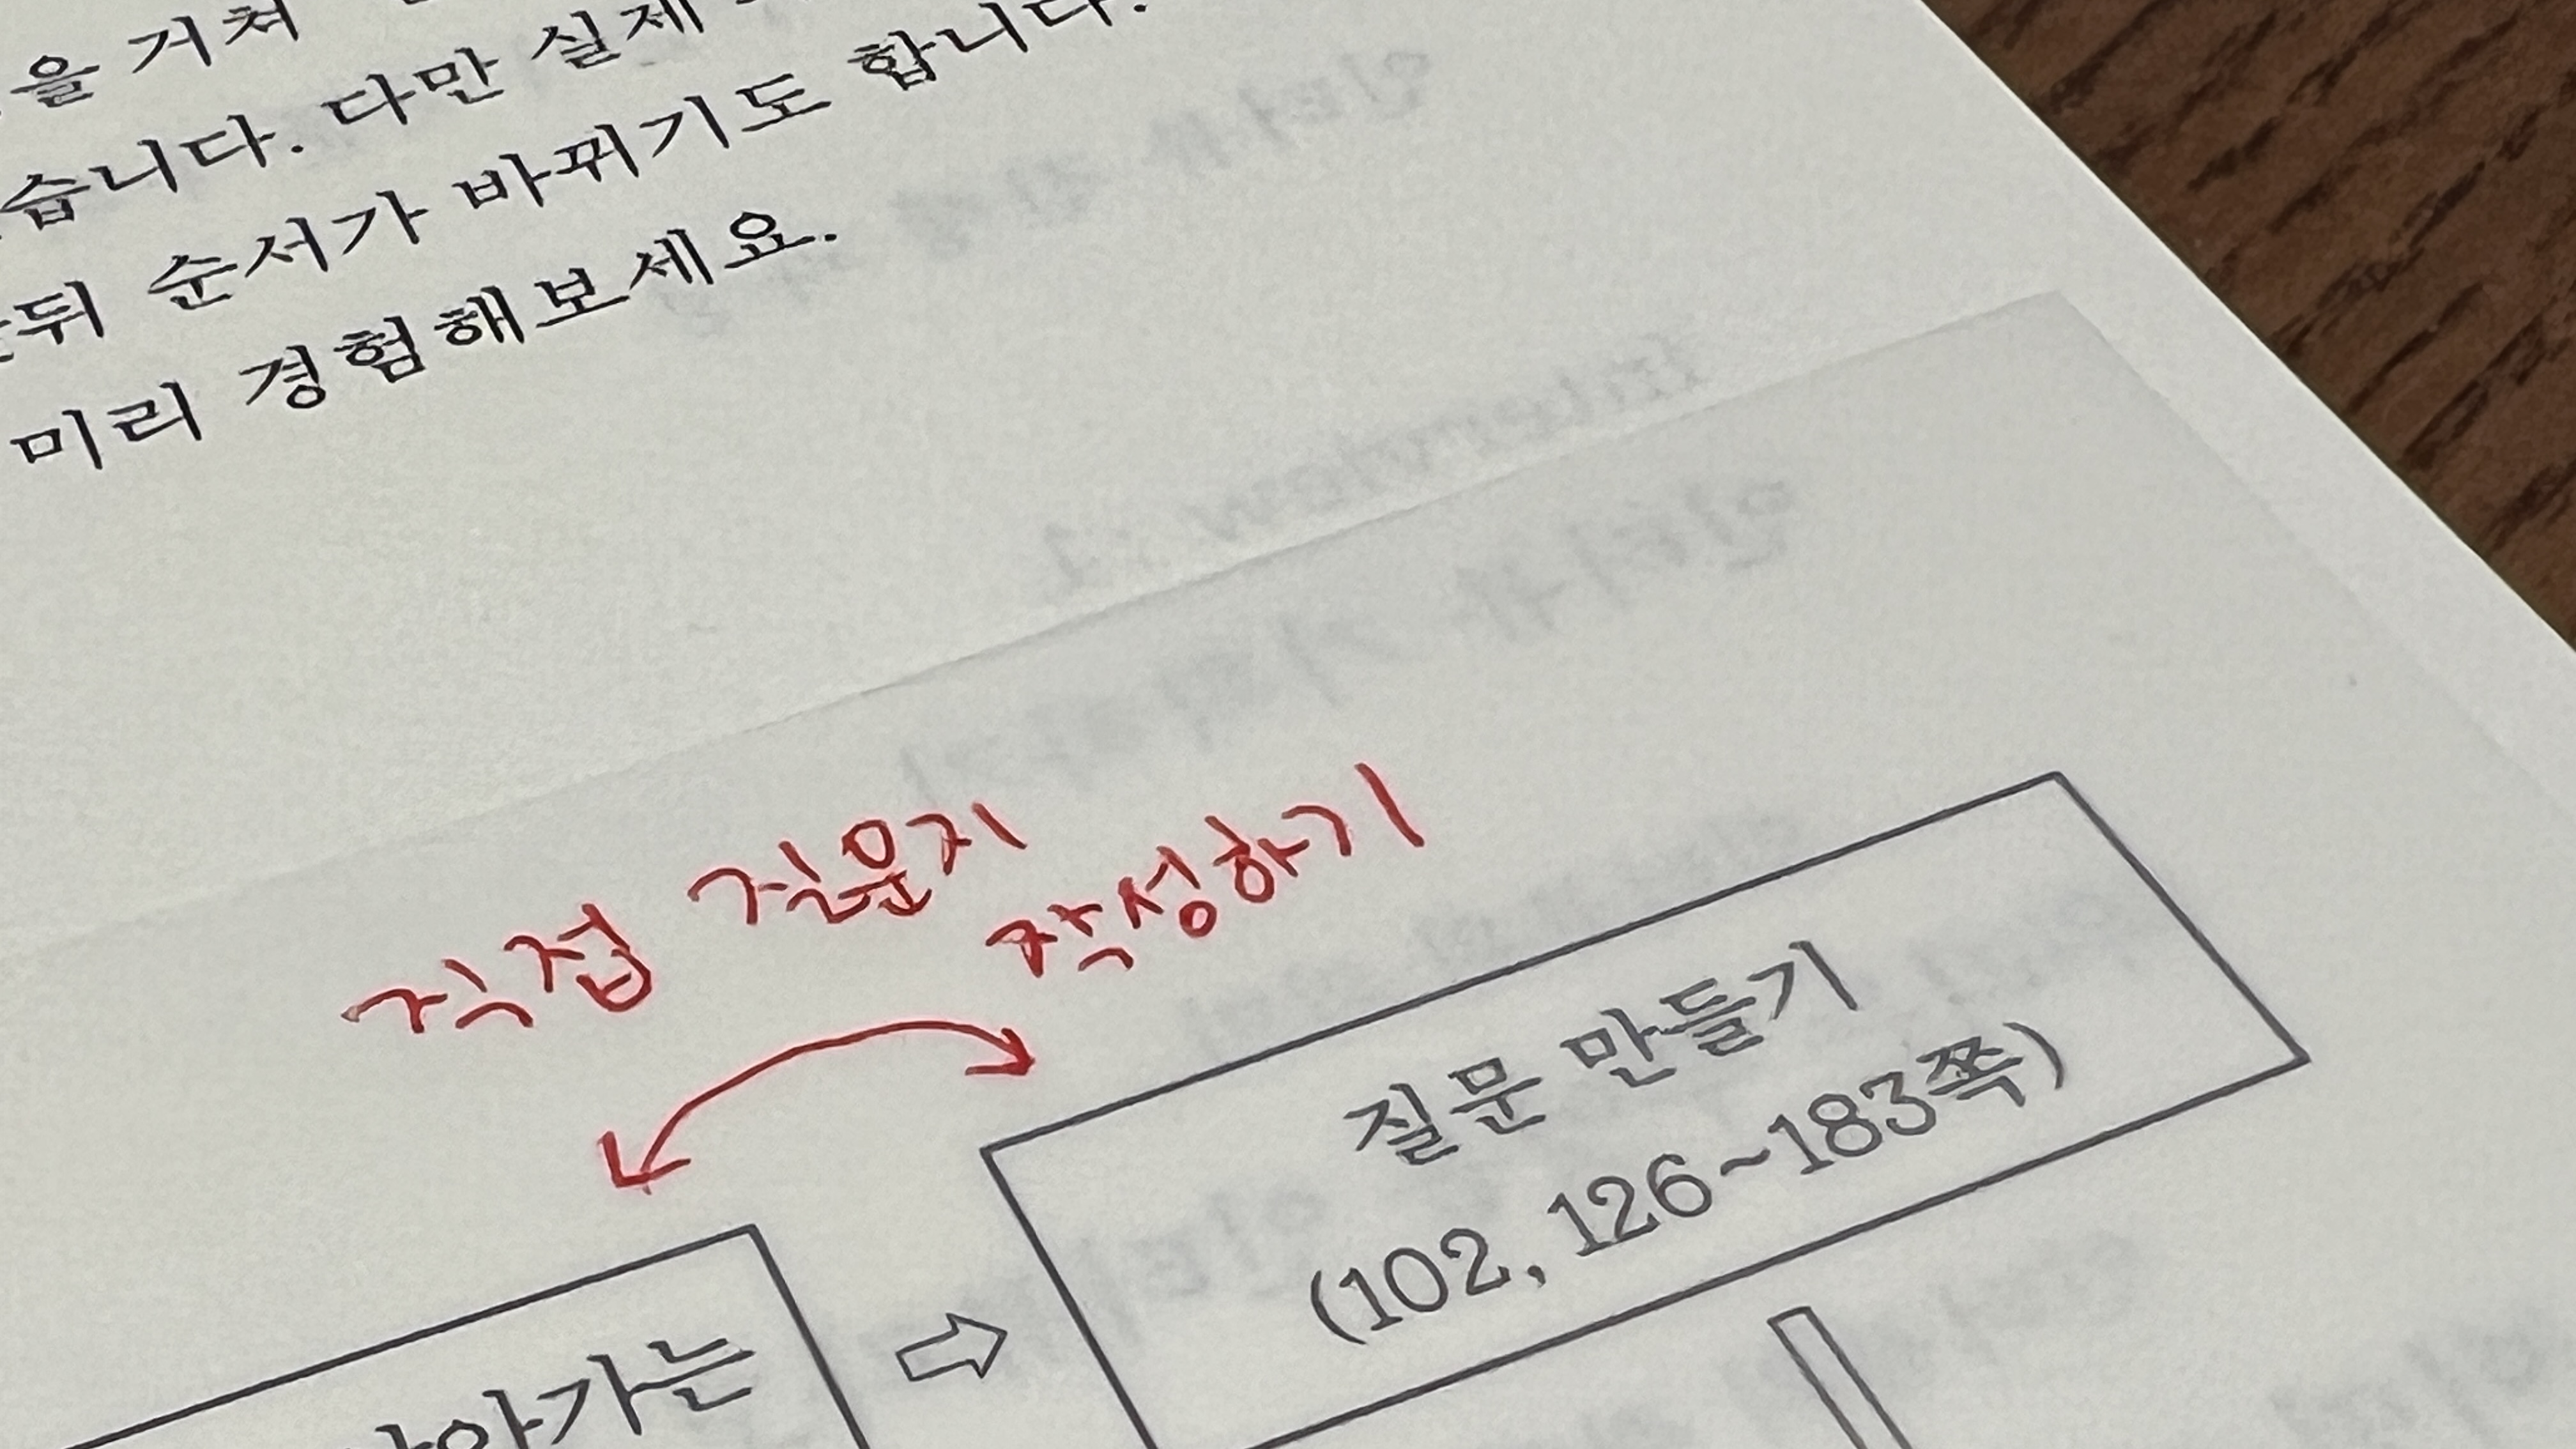 을 거쳐
습니다. 다만 실제
뒤 순서가 바뀌기도 합니다.
미리 경험해보세요.
직접 질문지
작성하기
질문 만들기
(102, 126~183쪽)
아가는